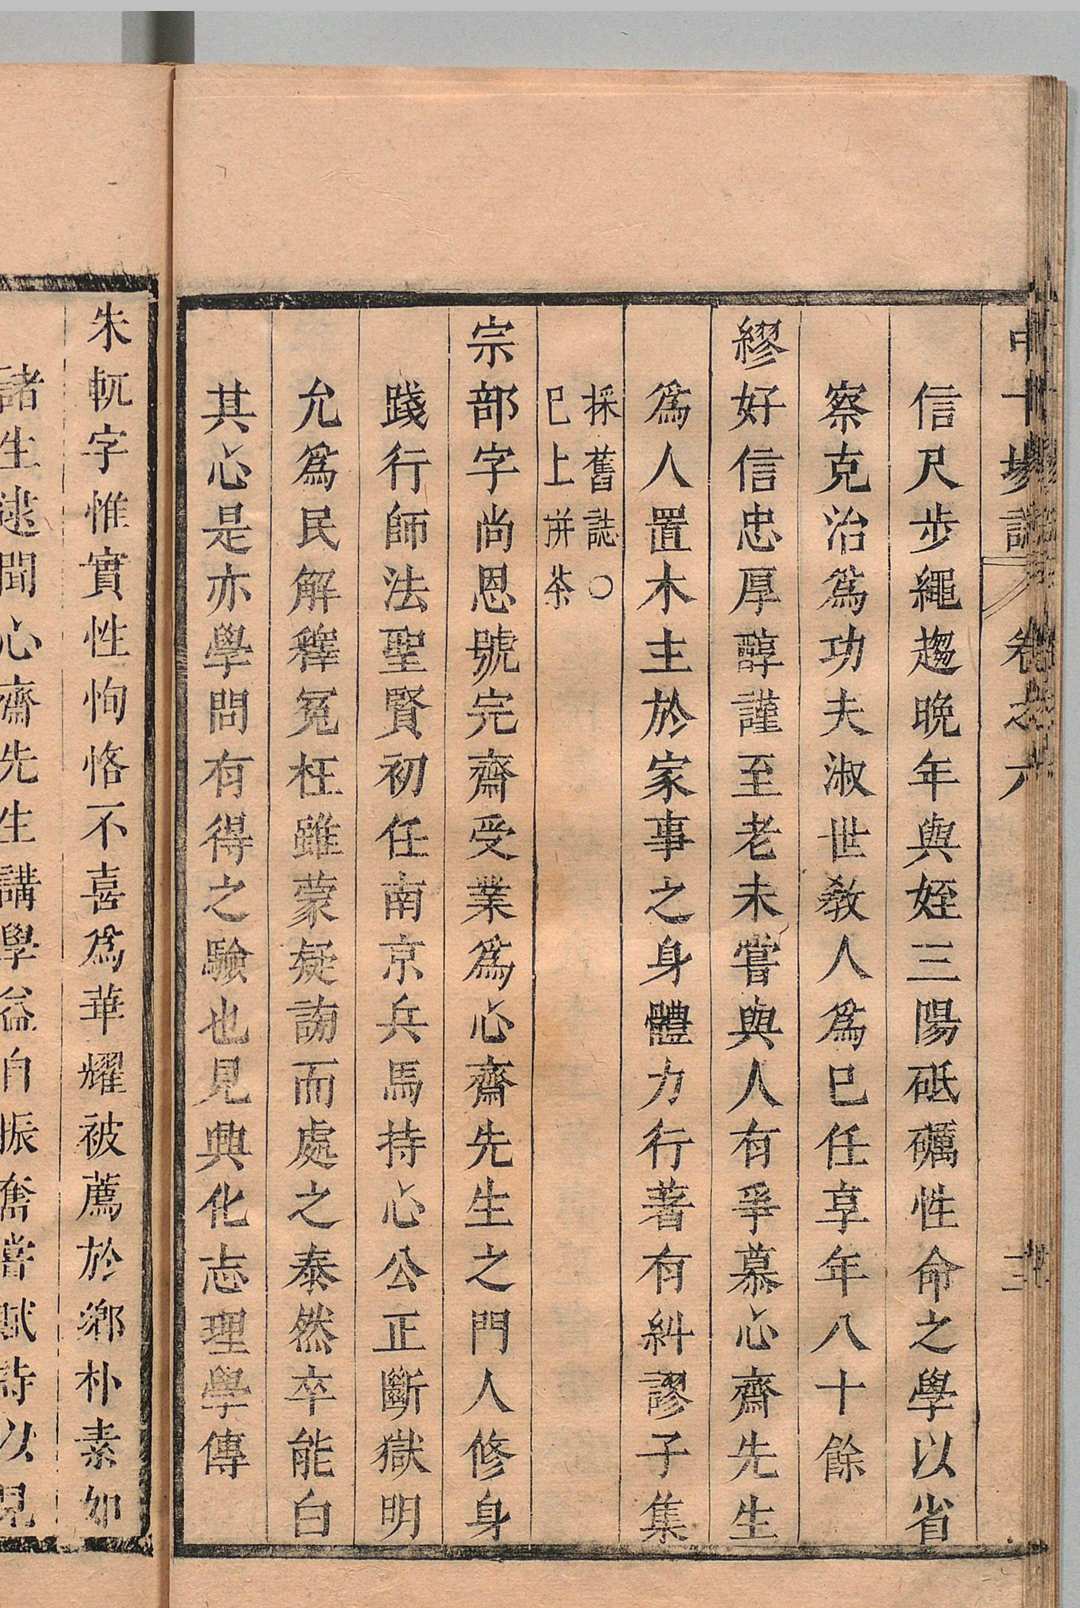 信尺步繩趨晚年與姪三陽砥礪性命之學以省
察克治爲功夫淑世敎人爲已任享年八十餘
繆好信忠厚醇謹至老未嘗與人有爭慕心齋先生
爲人置木主於家事之身體力行著有糾謬子集
採舊誌○
已上拼茶
宗部字尚恩號完齋受業爲心齋先生之門人修身
踐行師法聖賢初任南京兵馬持心公正斷獄明
允爲民解釋冤枉雖蒙疑謗而處之泰然卒能白
其心是亦學問有得之驗也見興化志理學傳
朱軏字惟實性恂恪不喜爲華耀被薦於鄉朴素如
諸生逮聞心齋先生講學益自振奮嘗賦詩以見